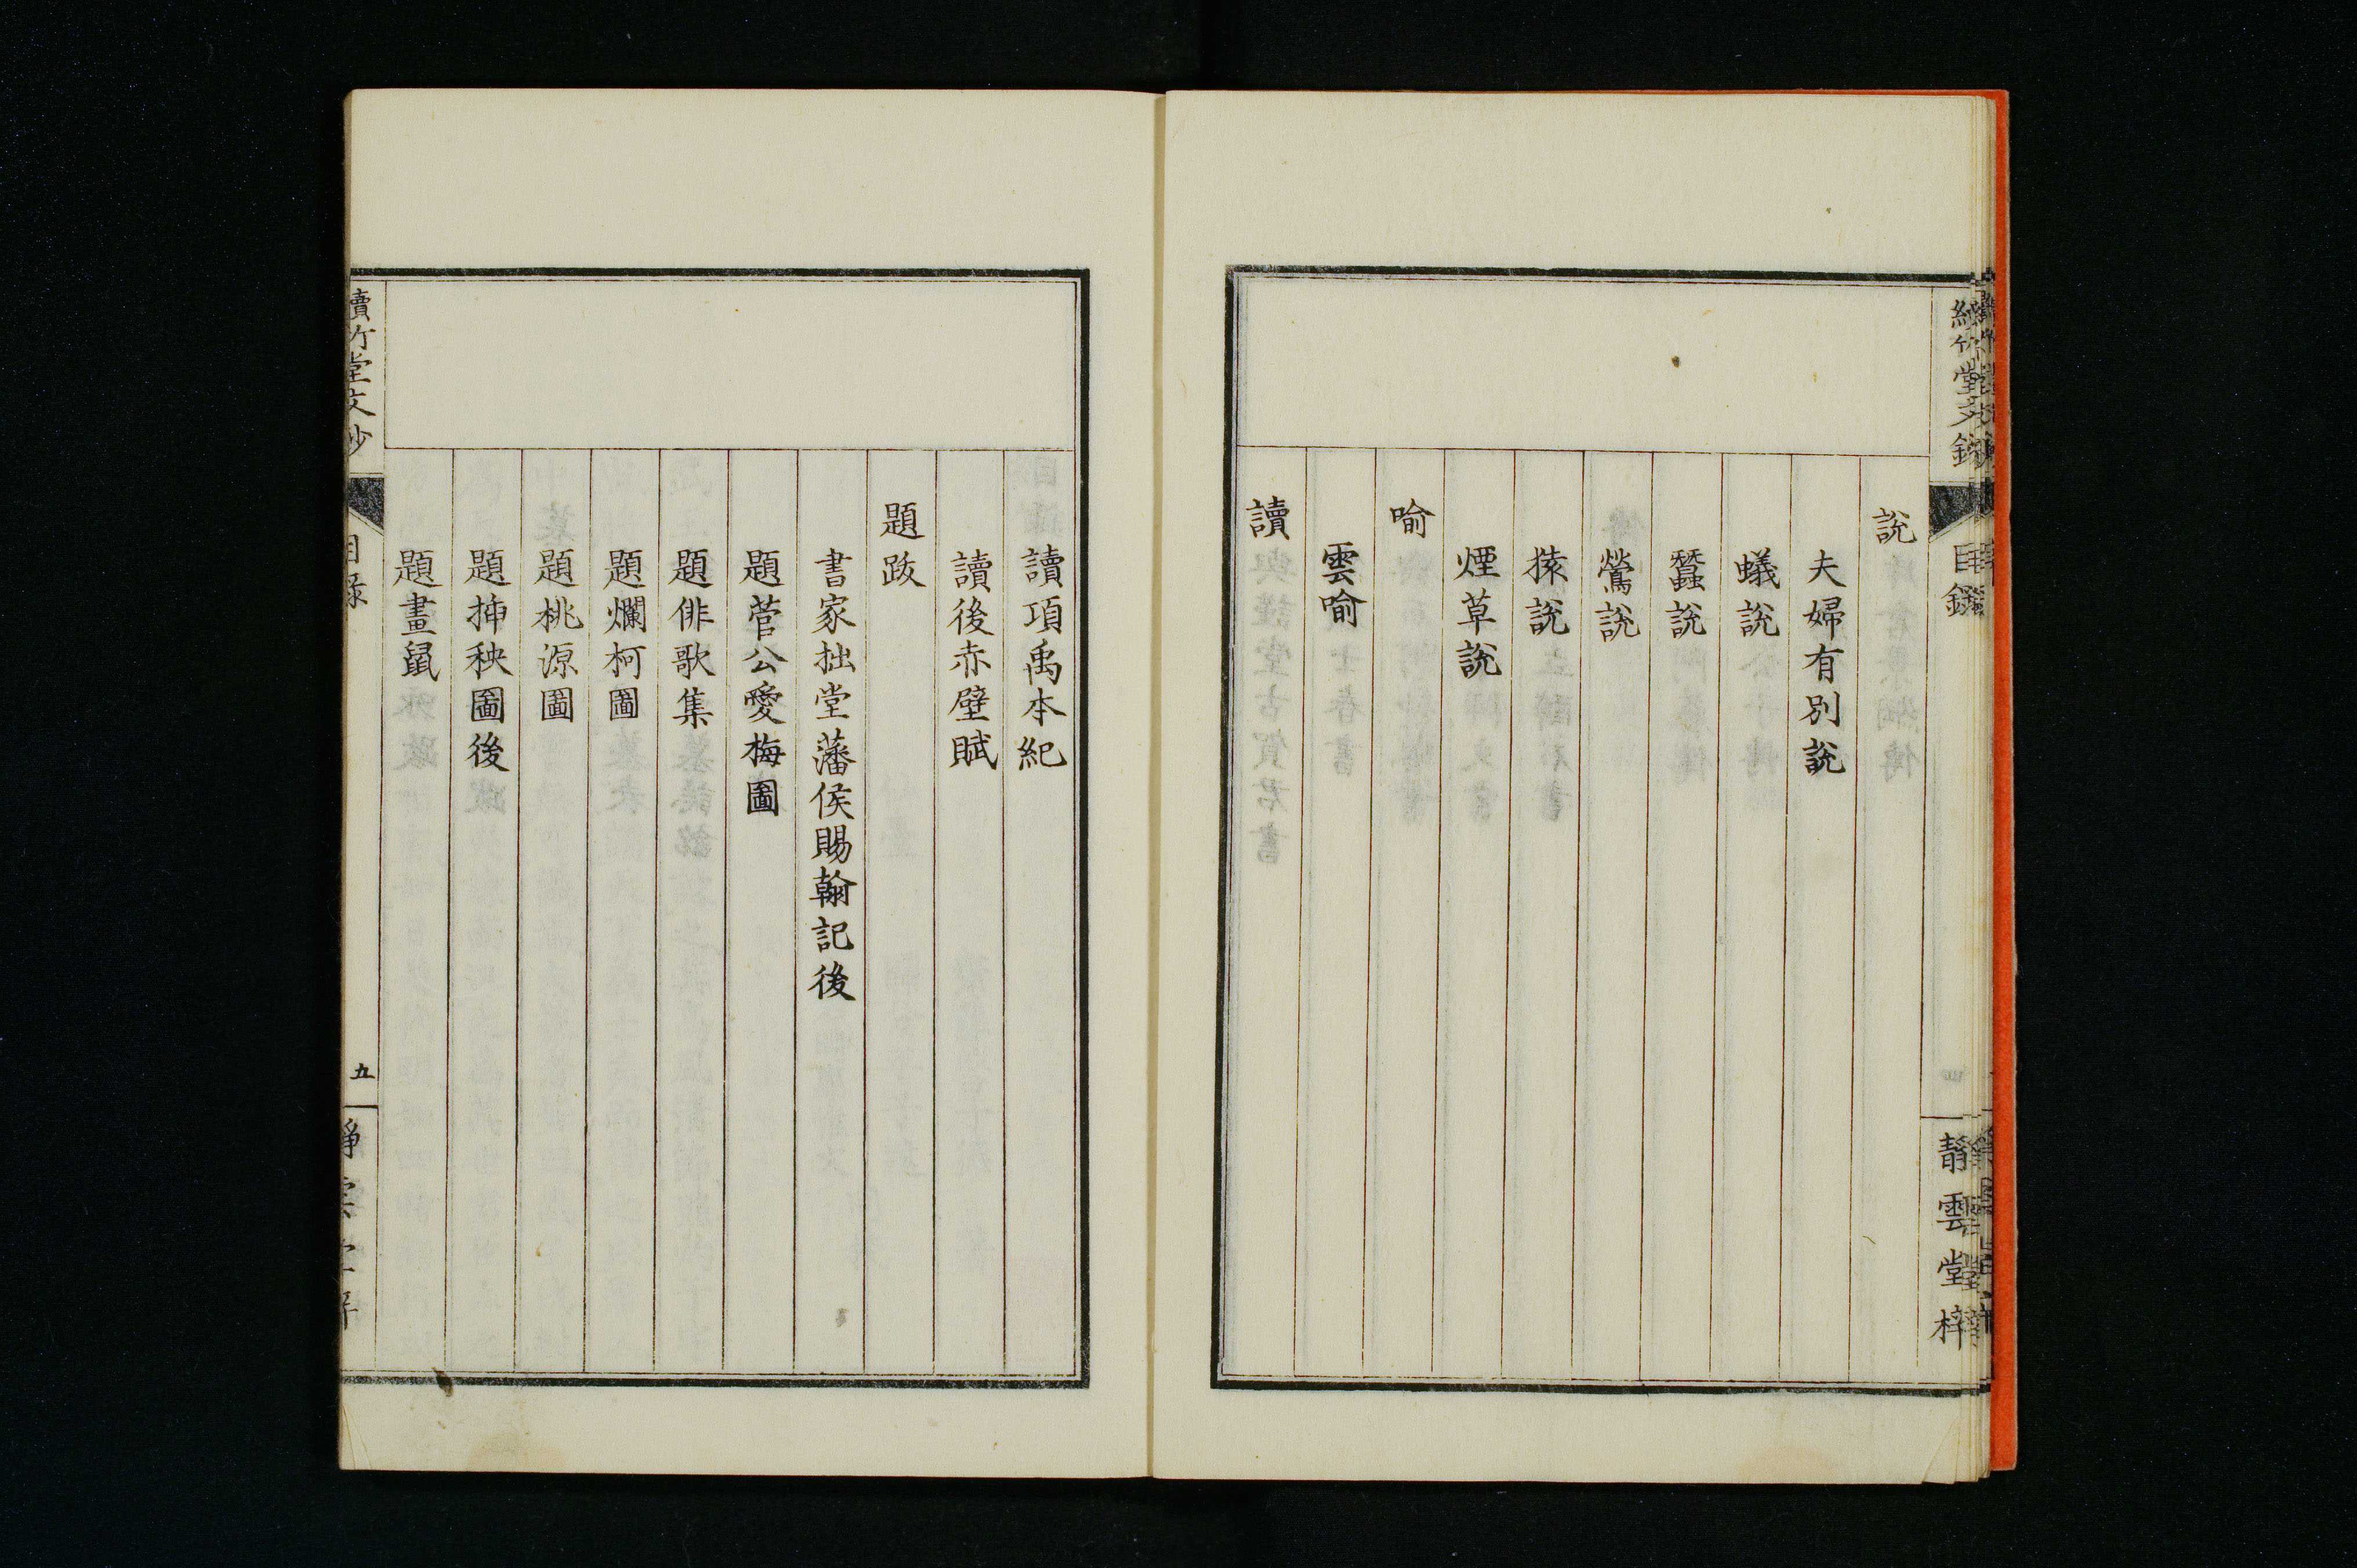 說
夫婦有別說
蟻說
蠶說
鶯說
猿說
煙草說
喻
雲喻
讀
目錄
四
靜雲堂梓
讀項禹本紀
讀後赤壁賦
題跋
書家拙堂藩侯賜翰記後
題菅公愛梅圖
題俳歌集
題爛柯圖
題桃源圖
題揷秧圖後
題畫鼠
竹堂文鈔
目錄
五